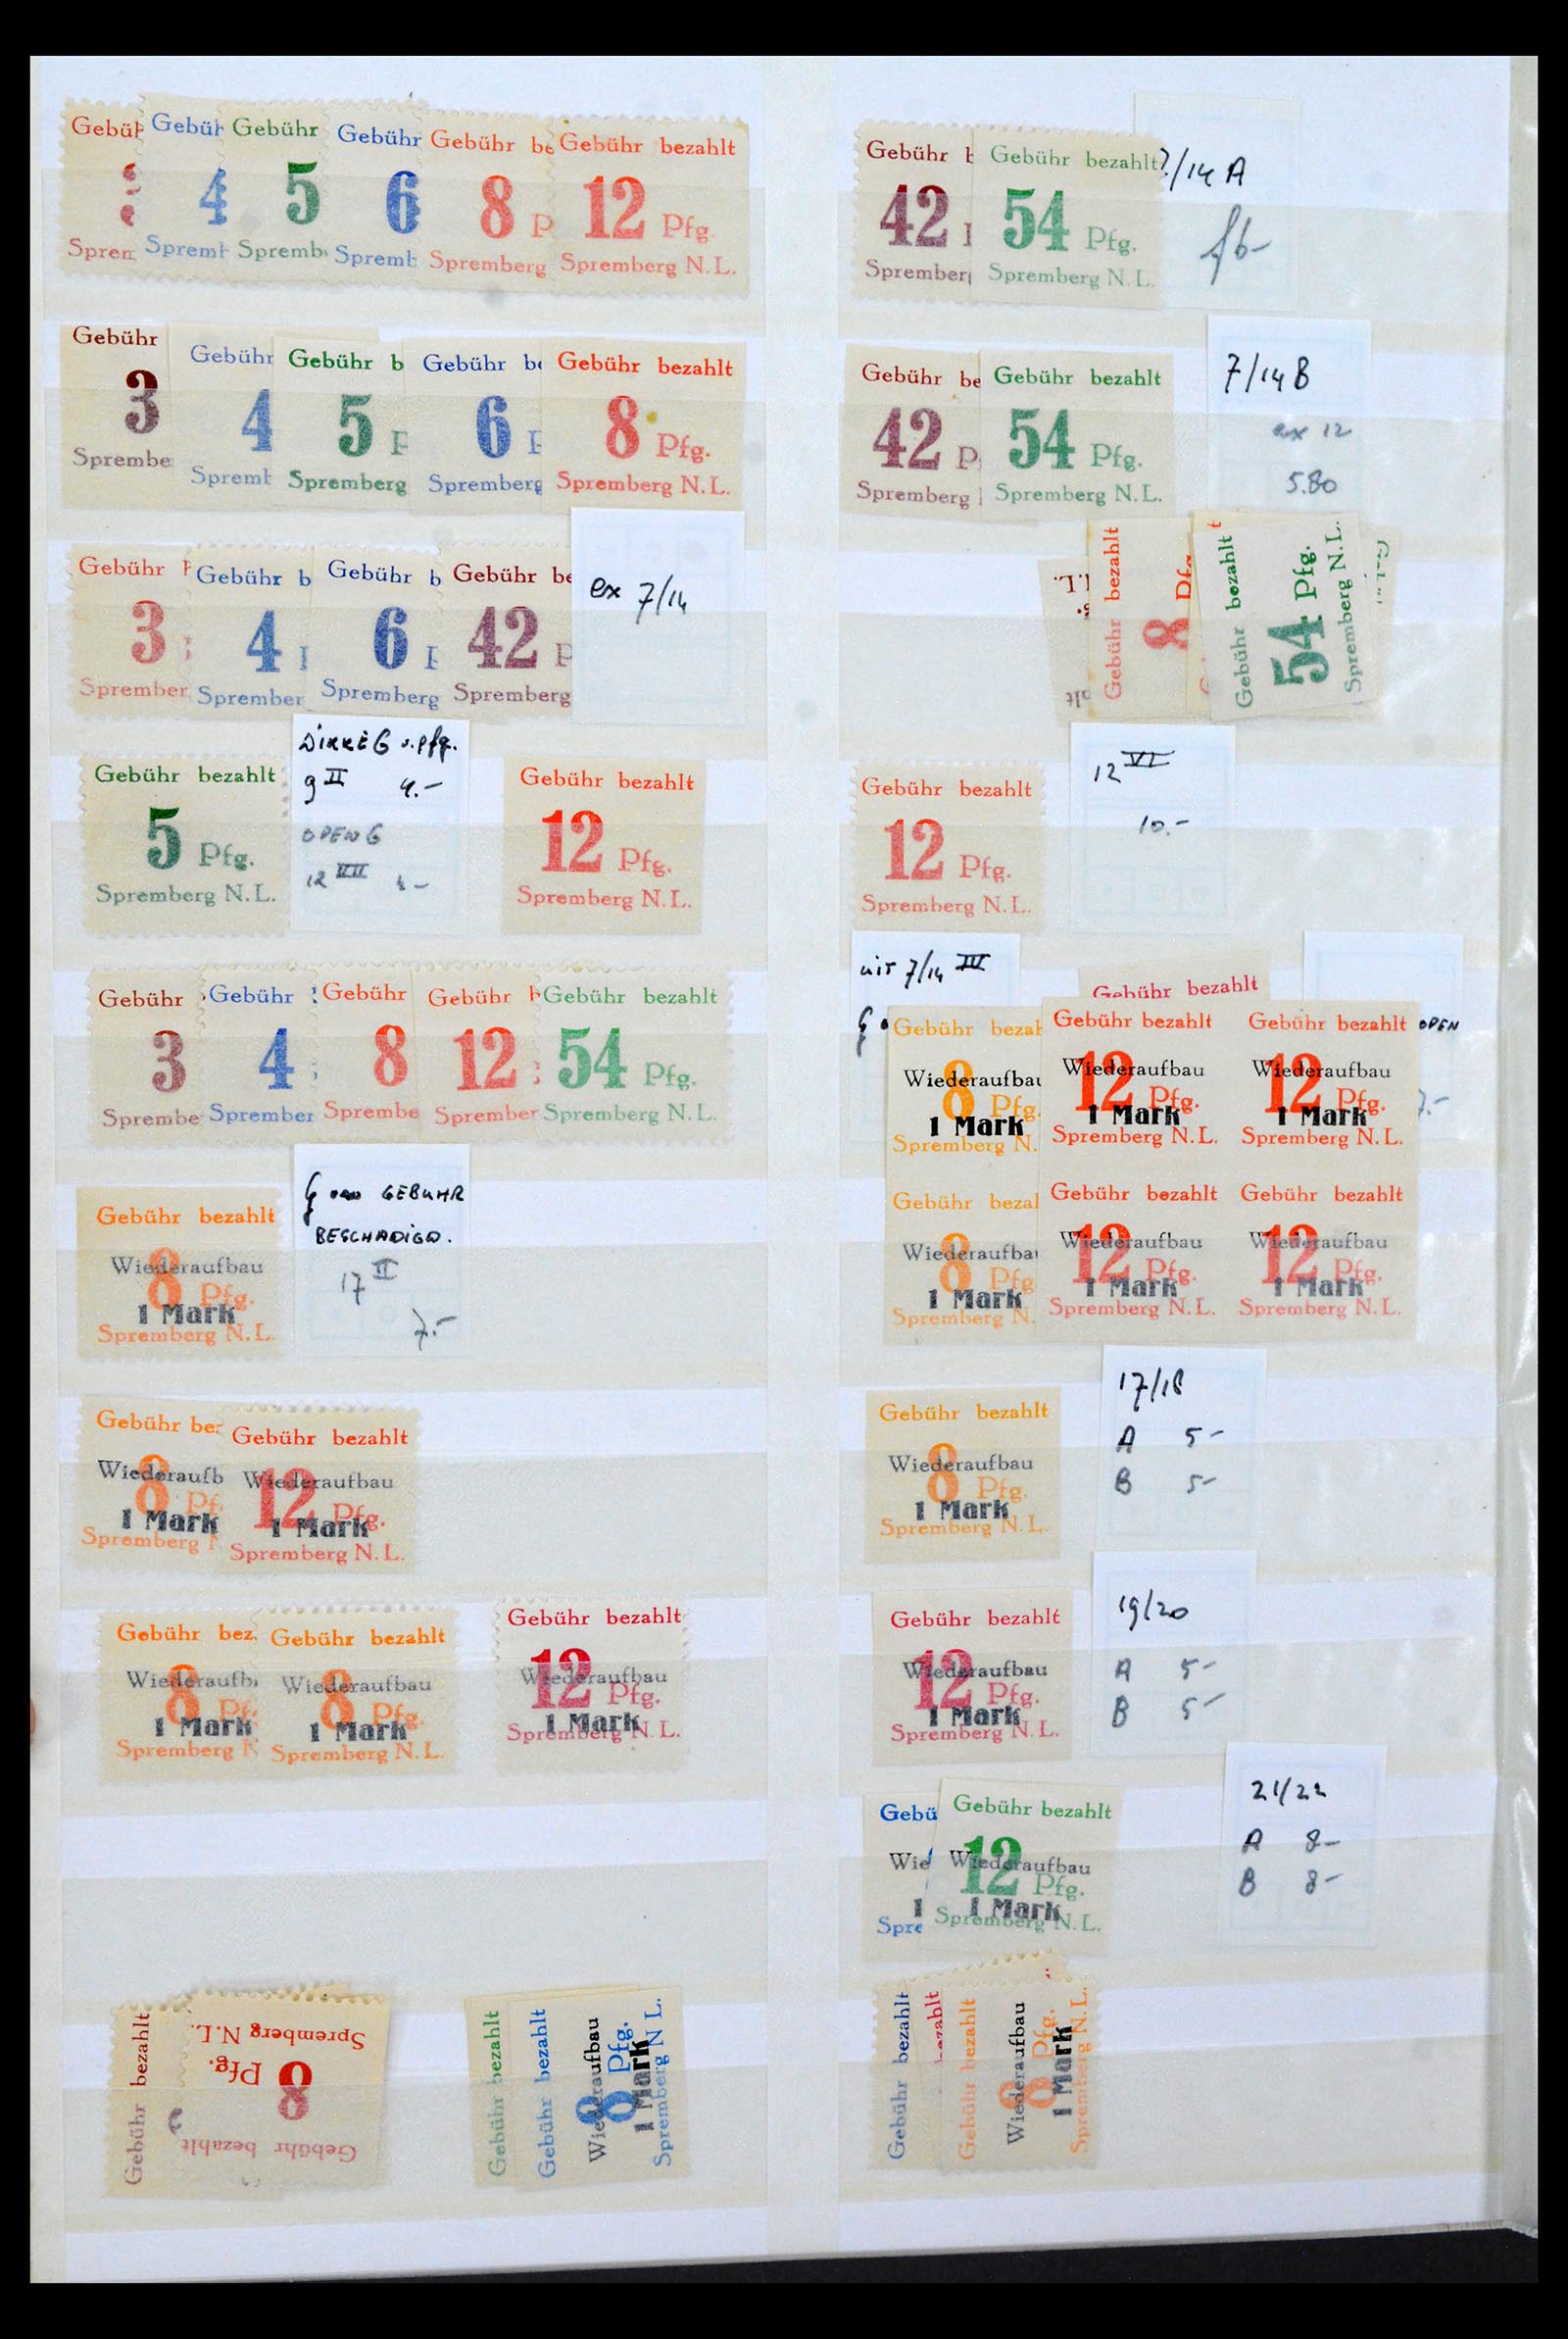 Gebühr
4
Spremb
Gebühr
5
Spremb
Gebühr
6
Spremb
Gebühr be
8 P
Spremberg
Gebühr bezahlt
12 Pfg.
Spremberg N.L.
Gebühr
3
Sprembe
Gebühr
4
Spremb
Gebühr b
5
Spremberg
Gebühr be
6
Spremberg
Gebühr bezahlt
8 Pfg.
Spremberg N.L.
Gebühr
3
Sprember
Gebühr b
4
Sprember
Gebühr b
6
Spremberg
Gebühr be
42 P
Spremberg
ex 7/14
Gebühr bezahlt
5 Pfg.
Spremberg N.L.
DIKKE G v. Pfg.
9 II 4.-
OPEN G
12
Gebühr bezahlt
12 Pfg.
Spremberg N.L.
Gebühr
3
Sprembe
Gebühr
4
Sprember
Gebühr
8
Sprembe
Gebühr
12
Sprember
Gebühr bezahlt
54 Pfg.
Spremberg N.L.
Gebühr bezahlt
Wiederaufbau
8 Pfg.
1 Mark
Spremberg N.L.
G van GEBUHR
BESCHADIGD.
17 II
7.-
Gebühr bez
Wiederaufb
8 Pf
1 Mark
Spremberg
Gebühr bezahlt
Wiederaufbau
12 Pfg.
1 Mark
Spremberg N.L.
Gebühr bez
Wiederaufb
8 Pf
1 Mark
Spremberg
Gebühr bezahlt
Wiederaufbau
8 Pfg.
1 Mark
Spremberg N.L.
Gebühr bezahlt
Wiederaufbau
12 Pfg.
1 Mark
Spremberg N.L.
Gebühr bezahlt
Spremberg N.L.
Pfg.
8
Gebühr bezahlt
Gebühr bezahlt
Gebühr bezahlt
Wiederaufbau
8 Pfg.
1 Mark
Spremberg N L.
Gebühr
42
Spremberg
Gebühr bezahlt
54 Pfg.
Spremberg N.L.
/14 A
Gebühr be
42 P
Spremberg
Gebühr bezahlt
54 Pfg.
Spremberg N.L.
7/14 B
ex 12
5.80
Gebühr bezahlt
8 Pfg.
Gebühr bezahlt
54 Pfg.
Spremberg N.L.
Gebühr bezahlt
12 Pfg.
Spremberg N.L.
12 VI
10.-
uit 7/14 IV
Gebühr bezahlt
OPEN
Gebühr bezah
Wiederaufbau
8 Pfg.
1 Mark
Spremberg N.
Gebühr bezahlt
Wiederaufbau
12 Pfg.
1 Mark
Spremberg N.L.
Gebühr bezahlt
Wiederaufbau
12 Pfg.
1 Mark
Spremberg N.L.
Gebühr bezal
Wiederaufbau
8 Pfg
1 Mark
Spremberg N.
Gebühr bezahlt
Wiederaufbau
12 Pfg.
1 Mark
Spremberg N.L.
Gebühr bezahlt
Wiederaufbau
12 Pfg.
1 Mark
Spremberg N.L.
Gebühr bezahlt
Wiederaufbau
8 Pfg.
1 Mark
Spremberg N.L.
17/18
A 5-
B 5-
Gebühr bezahlt
Wiederaufbau
12 Pfg.
1 Mark
Spremberg N.L.
19/20
A 5-
B 5-
Gebü
Wie
1
Spre
Gebühr bezahlt
Wiederaufbau
12 Pfg.
1 Mark
Spremberg N.L.
21/22
A 8-
B 8-
Gebühr bezahlt
Gebühr bezahlt
Wiederaufbau
8 Pfg.
1 Mark
Spremberg N.L.